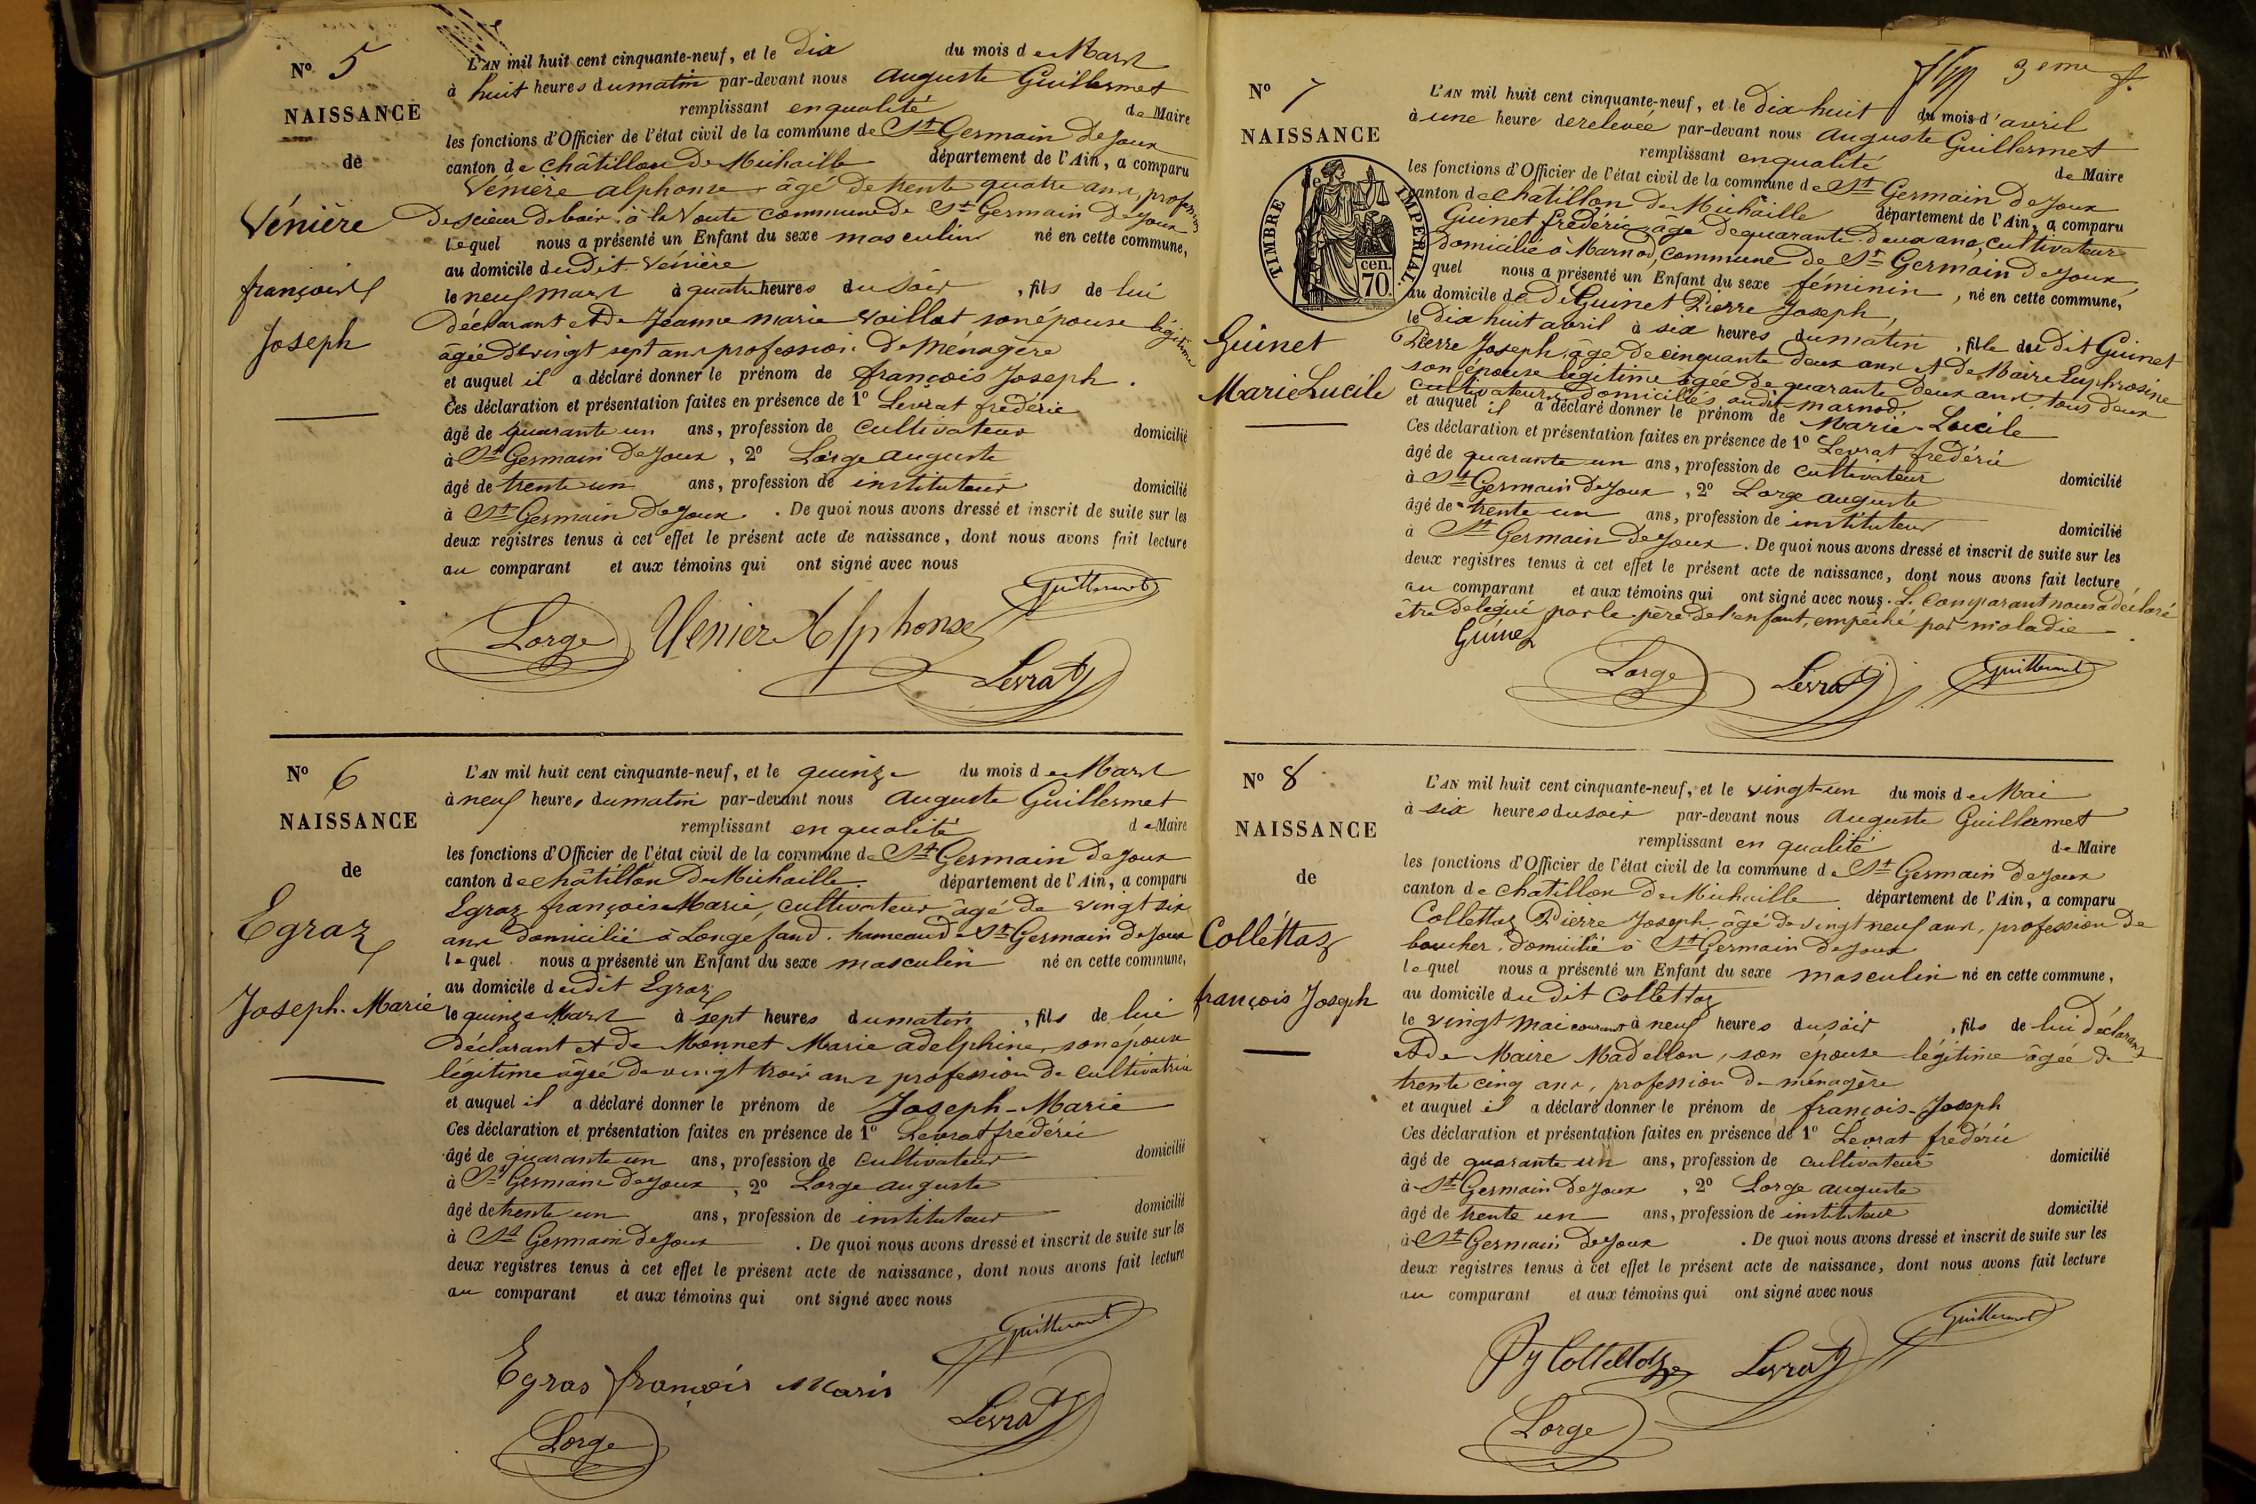 N° 5
NAISSANCE
de
Vénière
françois
Joseph
L'AN mil huit cent cinquante-neuf, et le dix du mois de Mars
à huit heures du matin par-devant nous auguste Guillermet
remplissant en qualité de Maire
les fonctions d'Officier de l'état civil de la commune de St Germain De Joux
canton de châtillon De Michaille département de l'Ain, a comparu
Vénière alphonse âgé De trente quatre ans, profession
De scieur De bois, à la Voute commune De St Germain De Joux
lequel nous a présenté un Enfant du sexe masculin né en cette commune,
au domicile du dit Vénière
le neuf mars à quatre heures du soir, fils de lui
déclarant et De Jeanne marie Voillat son épouse légitime
âgée De vingt sept ans profession De Ménagère
et auquel il a déclaré donner le prénom de françois Joseph.
Ces déclaration et présentation faites en présence de 1° Levrat frédéric
âgé de quarante un ans, profession de cultivateur domicilié
à St Germain De Joux, 2° Lorge auguste
âgé de trente un ans, profession de instituteur domicilié
à St Germain De Joux. De quoi nous avons dressé et inscrit de suite sur les
deux registres tenus à cet effet le présent acte de naissance, dont nous avons fait lecture
au comparant et aux témoins qui ont signé avec nous
Guillermet
Lorge Venier Alphonse
Levrat
N° 6
NAISSANCE
de
Egraz
Joseph-Marie
L'AN mil huit cent cinquante-neuf, et le quinze du mois de Mars
à neuf heures du matin par-devant nous auguste Guillermet
remplissant en qualité de Maire
les fonctions d'Officier de l'état civil de la commune de St Germain De Joux
canton de châtillon De Michaille département de l'Ain, a comparu
Egraz françois Marie, cultivateur âgé De vingt six
ans domicilié à Longefand. hameau De St Germain De Joux
lequel nous a présenté un Enfant du sexe masculin né en cette commune,
au domicile du dit Egraz
le quinze Mars à sept heures du matin, fils de lui
déclarant et De Monnet Marie adelphine, son épouse
légitime âgée De vingt trois ans profession De cultivatrice
et auquel il a déclaré donner le prénom de Joseph-Marie
Ces déclaration et présentation faites en présence de 1° Levrat frédéric
âgé de quarante un ans, profession de cultivateur domicilié
à St Germain De Joux, 2° Lorge auguste
âgé de trente un ans, profession de instituteur domicilié
à St Germain De Joux. De quoi nous avons dressé et inscrit de suite sur les
deux registres tenus à cet effet le présent acte de naissance, dont nous avons fait lecture
au comparant et aux témoins qui ont signé avec nous
Guillermet
Egras françois Marie
Levrat
Lorge
3eme f.
N° 7
NAISSANCE
de
TIMBRE IMPERIAL
70 cen.
Guinet
Marie Lucile
L'AN mil huit cent cinquante-neuf, et le Dix-huit du mois d'avril
à une heure de relevée par-devant nous auguste Guillermet
remplissant en qualité de Maire
les fonctions d'Officier de l'état civil de la commune de St Germain De Joux
canton de chatillon De Michaille département de l'Ain, a comparu
Guinet frédéric, âgé De quarante Deux ans, cultivateur
Domicilié à Marnod, commune De St Germain De Joux
quel nous a présenté un Enfant du sexe féminin, né en cette commune,
au domicile de Dt Guinet Pierre Joseph,
le Dix huit avril à six heures du matin, fille du Dit Guinet
Pierre Joseph, âgé De cinquante Deux ans et De Maire Euphrosine
son épouse légitime âgée De quarante Deux ans, tous Deux
cultivateurs domiciliés au dit marnod.
et auquel il a déclaré donner le prénom de Marie-Lucile
Ces déclaration et présentation faites en présence de 1° Levrat frédéric
âgé de quarante un ans, profession de cultivateur domicilié
à St Germain De Joux, 2° Lorge auguste
âgé de trente un ans, profession de instituteur domicilié
à St Germain De Joux. De quoi nous avons dressé et inscrit de suite sur les
deux registres tenus à cet effet le présent acte de naissance, dont nous avons fait lecture
au comparant et aux témoins qui ont signé avec nous. Le comparant nous a déclaré
être Délégué par le père De l'enfant, empêché par maladie.
Guinet
Lorge Levrat Guillermet
N° 8
NAISSANCE
de
Collettaz
françois Joseph
L'AN mil huit cent cinquante-neuf, et le vingt-un du mois de Mai
à six heures du soir par-devant nous auguste Guillermet
remplissant en qualité de Maire
les fonctions d'Officier de l'état civil de la commune de St Germain De Joux
canton de chatillon De Michaille département de l'Ain, a comparu
Collettaz Pierre Joseph, âgé De vingt neuf ans, profession De
boucher, domicilié à St Germain De Joux
lequel nous a présenté un Enfant du sexe masculin né en cette commune,
au domicile du dit Collettaz
le vingt Mai courant à neuf heures du soir, fils de lui déclarant
et De Maire Madellon, son épouse légitime âgée De
trente cinq ans, profession De ménagère
et auquel il a déclaré donner le prénom de françois-Joseph
Ces déclaration et présentation faites en présence de 1° Levrat frédéric
âgé de quarante un ans, profession de cultivateur domicilié
à St Germain De Joux, 2° Lorge auguste
âgé de trente un ans, profession de instituteur domicilié
à St Germain De Joux. De quoi nous avons dressé et inscrit de suite sur les
deux registres tenus à cet effet le présent acte de naissance, dont nous avons fait lecture
au comparant et aux témoins qui ont signé avec nous
Guillermet
Collettaz Levrat
Lorge